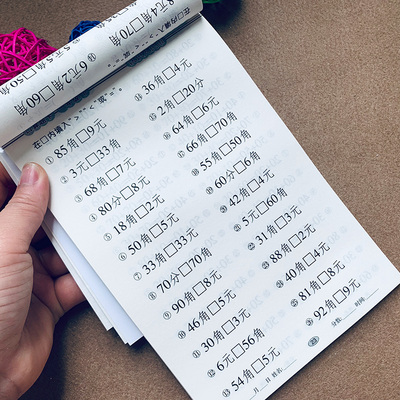 8元4角□70角
5元5角□50角
6元2角□60角
在□内填入“>”、“<”或“=”。
①85角□9元
②3元□33角
③68角□7元
④80分□8元
⑤18角□2元
⑥50角□5元
⑦33角□33元
⑧70分□70角
⑨90角□8元
⑩46角□5元
⑪30角□3元
⑫6元□56角
⑬54角□5元
⑭36角□4元
⑮2角□20分
⑯64角□6元
⑰66角□70角
⑱55角□50角
⑲60分□6角
⑳42角□4元
㉑5元□60角
㉒31角□3元
㉓88角□2元
㉔40角□4元
㉕81角□8元
㉖92角□9元
月 日 姓名 分数: 时间: